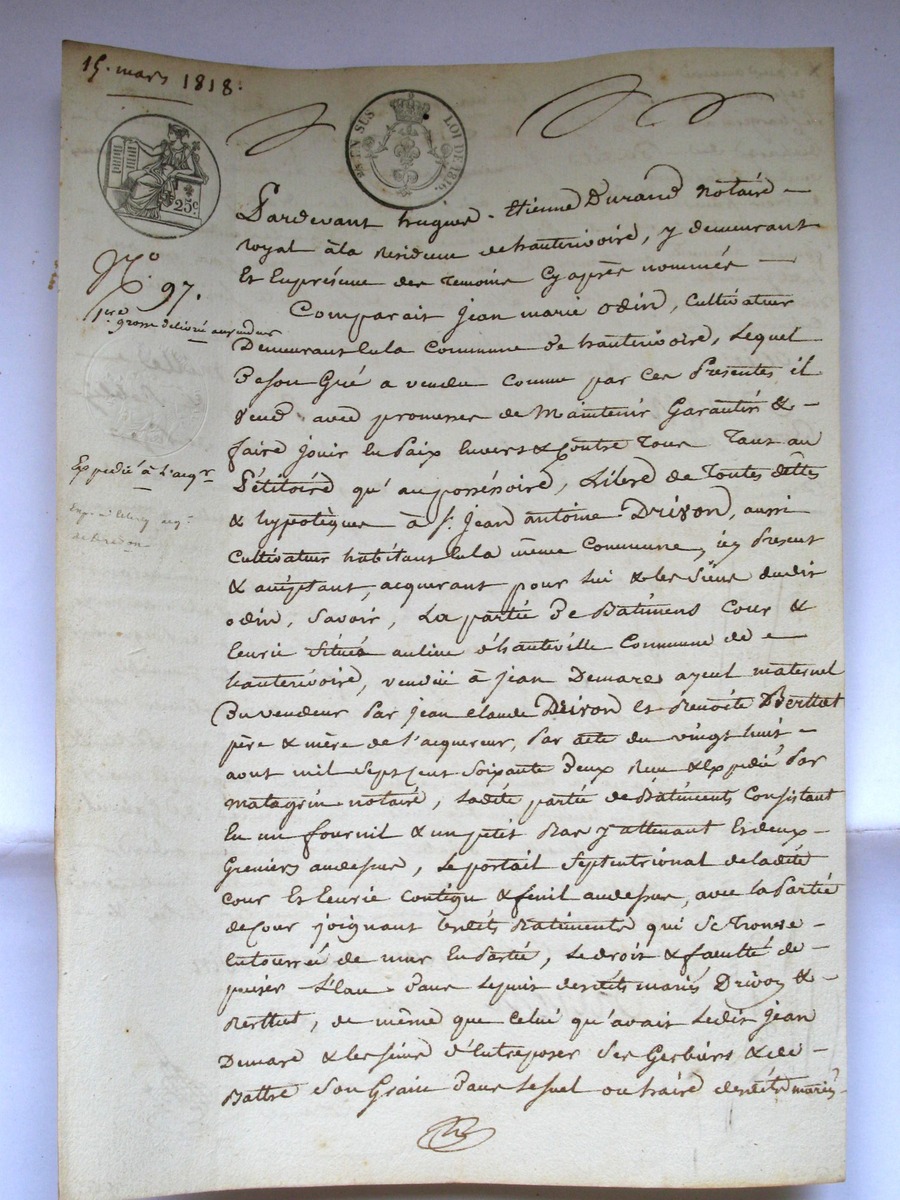 15. mars 1818.
25c
EN SUS
LOI DE 1816.
N.o 97.
1ere grosse délivré au vendeur
Expedié à l'acqr
Pardevant hugues-Etienne Durand notaire
royal à la residence de hauterivoire, y demeurant
Et En présence des temoins Cy après nommés
Comparait jean marie odin, Cultivateur
Demeurant En la Commune de hauterivoire, Lequel
De son Gré a vendu Comme par Ces Presentes il
Vend avec promesse de Maintenir Garantir &
faire jouir En Paix Envers & Contre Tous Tant au
Pétitoire qu'au possessoire, Libre de toutes dettes
& hypotèques à Sr. Jean antoine Drivon, aussi
Cultivateur habitant En la même Commune, icy Present
& acceptant, acquerant pour lui & les Siens dudit
odin, Savoir, La partie De Batimens Cour &
Ecurie Situés au lieu d'hauteville Commune de
hauterivoire, vendue à jean Demare ayeul maternel
Du vendeur Par jean claude Drivon Et Benoite Berthet
père & mère de l'acquereur, Par acte du vingt huit
aout mil sept cent soixante deux Reçu & Expedié Par
Matagrin notaire, Ladite partie de Bâtiments Consistant
En un fournil & un petit Bas y attenant Et deux
Greniers au dessus, Le portail Septentrional de ladite
Cour Et Ecurie Contigu & fenil au dessus, avec la Partie
de Cour joignant Lesdits Batiments qui Se trouve
Entourrée de murs En Partie, Le droit & faculté de
puiser L'Eau Dans Le puit desdits mariés Drivon &
Berthet, de même que Celui qu'avait Ledit jean
Demare & les siens d'Entreposer Ses Gerbiers & de
Battre Son Grain Dans Le Suel ou haire desdits mariés